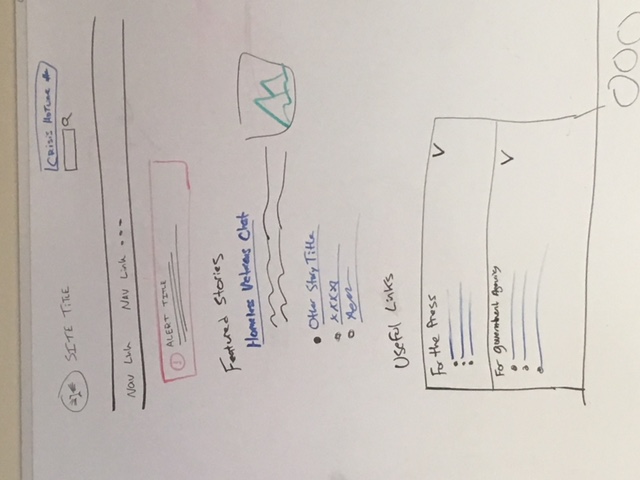 CRISIS HOTLINE #
SITE TITLE
Nav Link Nav Link
ALERT TITLE
Featured Stories
Homeless Veterans Chat
Other Story Title
xxxx
Useful Links
For the Press
For government Agencies